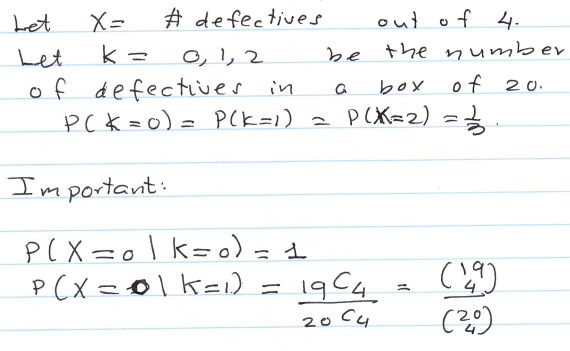 Let X = # defectives out of 4.
Let k = 0, 1, 2 be the number
of defectives in a box of 20.
P(k=0) = P(k=1) = P(X=2) = 1/3.
Important:
P(X=0 | k=0) = 1
P(X=0 | k=1) = 19C4 / 20C4 = (19 4) / (20 4)